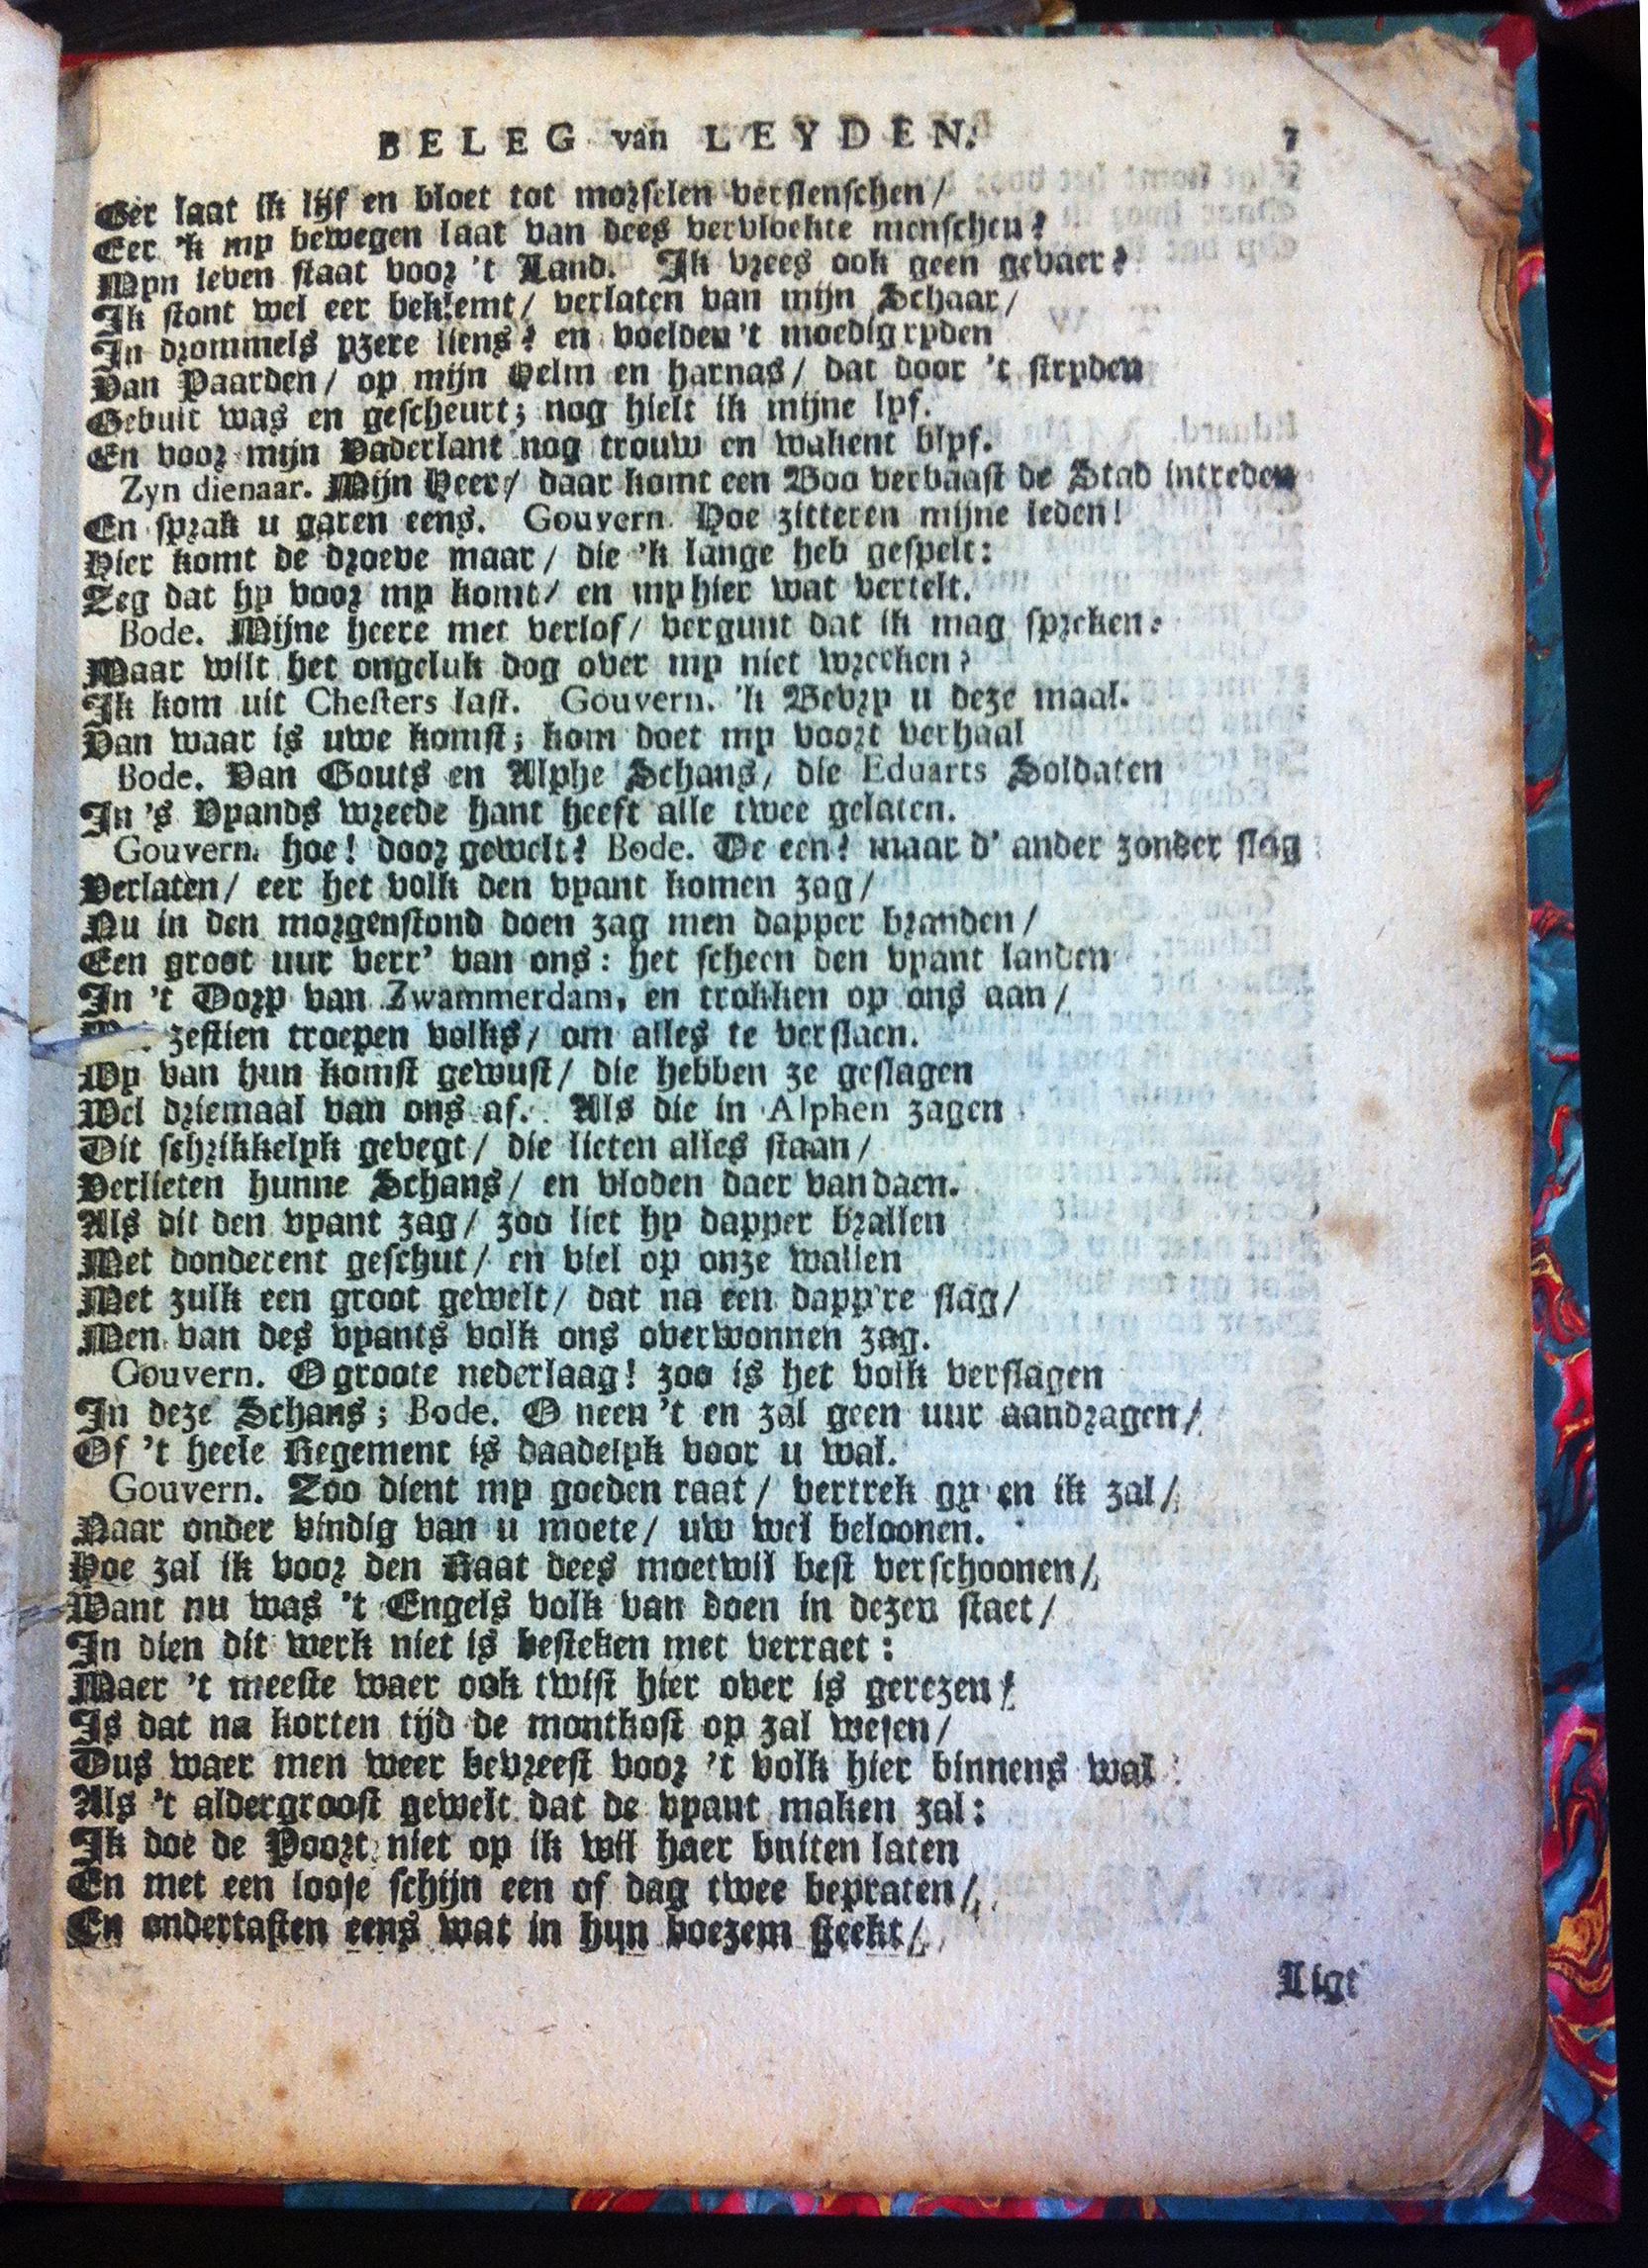 BELEG van LEYDEN. 7
Eer laat ik lijf en bloet tot morselen verslenschen/
Eer 'k my bewegen laat van dees vervloekte menschen?
Myn leven staat voor 't Land. Ik vrees ook geen gevaer?
Ik stont wel eer beklemt/ verlaten van mijn Schaar/
In drommels yzere liens? en voelden 't moedig ryden
Van Paarden/ op mijn Helm en harnas/ dat door 't stryden
Gebuit was en gescheurt; nog hielt ik mijne lyf.
En voor mijn Vaderlant nog trouw en wakent blyf.
Zyn dienaar. Mijn Heer/ daar komt een Boo verbaast de Stad intreden
En sprak u garen eens. Gouvern. Hoe zitteren mijne leden!
Hier komt de droeve maar/ die 'k lange heb gespelt:
Zeg dat hy voor my komt/ en my hier wat vertelt.
Bode. Mijne heere met verlof/ vergunt dat ik mag spreken?
Maar wilt het ongeluk dog over my niet wreeken?
Ik kom uit Chesters last. Gouvern. 'k Bevry u deze maal.
Van waar is uwe komst; kom doet my voort verhaal
Bode. Van Gouts en Alphe Schans/ die Eduarts Soldaten
In 's Vyands wreede hant heeft alle twee gelaten.
Gouvern. hoe! door gewelt? Bode. De een? maar d' ander zonder slag
Verlaten/ eer het volk den vyant komen zag/
Nu in den morgenstond doen zag men dapper branden/
Een groot uur verr' van ons: het scheen den vyant landen
In 't Dorp van Zwammerdam, en trokken op ons aan/
zestien troepen volks/ om alles te verslaen.
Wy van hun komst gewust/ die hebben ze geslagen
Wel driemaal van ons af. Als die in Alphen zagen
Dit schrikkelyk gevegt/ die lieten alles staan/
Verlieten hunne Schans/ en vloden daer van daen.
Als dit den vyant zag/ zoo liet hy dapper brallen
Met donderent geschut/ en viel op onze wallen
Met zulk een groot gewelt/ dat na een dapp're slag/
Men van des vyants volk ons overwonnen zag.
Gouvern. O groote nederlaag! zoo is het volk verslagen
In deze Schans; Bode. O neen 't en zal geen uur aandragen/
Of 't heele Regement is daadelyk voor u wal.
Gouvern. Zoo dient my goeden raat/ vertrek gy en ik zal/
Naar onder vindig van u moete/ uw wel beloonen.
Hoe zal ik voor den Raat dees moetwil best verschoonen/
Want nu was 't Engels volk van doen in dezen staet/
In dien dit werk niet is besteken met verraet:
Maer 't meeste waer ook twist hier over is gerezen/
Is dat na korten tijd de montkost op zal wesen/
Dus waer men weer bevreest voor 't volk hier binnens wal
Als 't aldergroost gewelt dat de vyant maken zal:
Ik doe de Poort niet op ik wil haer buiten laten
En met een looje schijn een of dag twee bepraten/
En ondertasten eens wat in hun boezem steekt/
Ligt